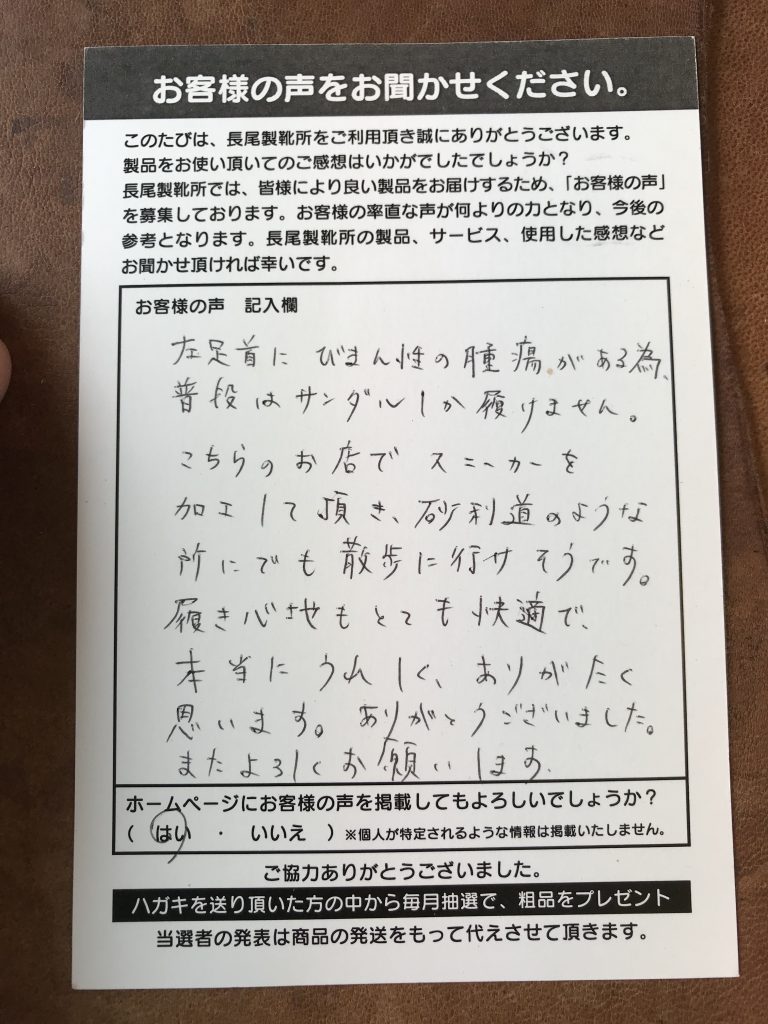 お客様の声をお聞かせください。
このたびは、長尾製靴所をご利用頂き誠にありがとうございます。
製品をお使い頂いてのご感想はいかがでしたでしょうか？
長尾製靴所では、皆様により良い製品をお届けするため、「お客様の声」
を募集しております。お客様の率直な声が何よりの力となり、今後の
参考となります。長尾製靴所の製品、サービス、使用した感想など
お聞かせ頂ければ幸いです。
お客様の声　記入欄
左足首に びまん性の腫瘍がある為、
普段はサンダルしか履けません。
こちらのお店で スニーカーを
加工して頂き、砂利道のような
所にでも散歩に行けそうです。
履き心地もとても快適で、
本当にうれしく、ありがたく
思います。ありがとうございました。
またよろしくお願いします。
ホームページにお客様の声を掲載してもよろしいでしょうか？
（　はい　・　いいえ　）※個人が特定されるような情報は掲載いたしません。
ご協力ありがとうございました。
ハガキを送り頂いた方の中から毎月抽選で、粗品をプレゼント
当選者の発表は商品の発送をもって代えさせて頂きます。